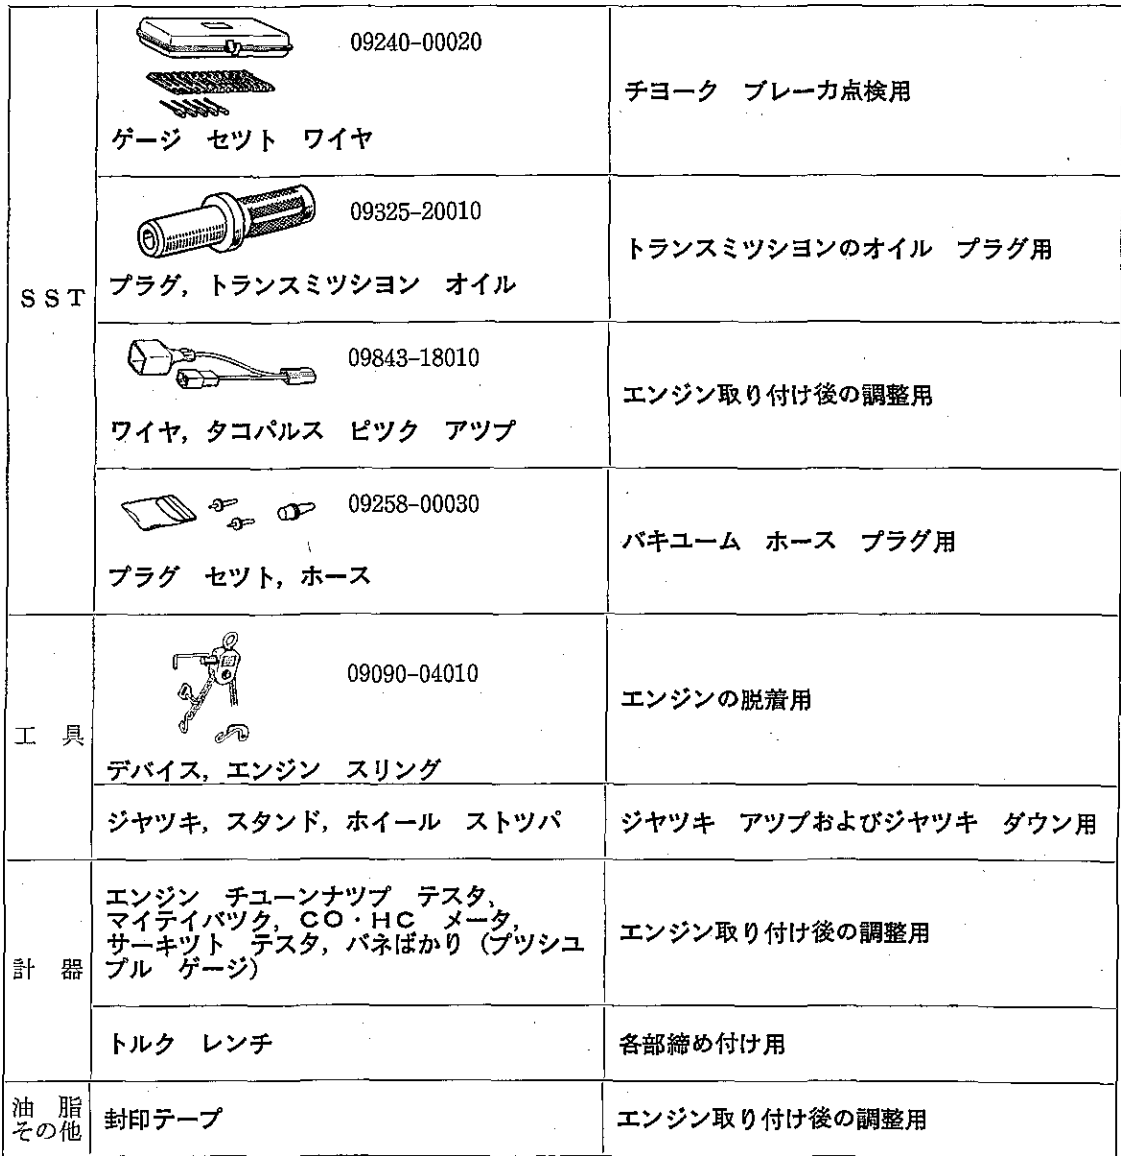 SST
09240-00020
ゲージ　セツト　ワイヤ
チヨーク　ブレーカ点検用
09325-20010
プラグ, トランスミツシヨン　オイル
トランスミツシヨンのオイル　プラグ用
09843-18010
ワイヤ, タコパルス　ピツク　アツプ
エンジン取り付け後の調整用
09258-00030
プラグ　セツト, ホース
バキユーム　ホース　プラグ用
工　具
09090-04010
デバイス, エンジン　スリング
エンジンの脱着用
ジヤツキ, スタンド, ホイール　ストツパ
ジヤツキ　アツプおよびジヤツキ　ダウン用
計　器
エンジン　チユーンナツプ　テスタ,
マイテイバツク, CO・HC　メータ,
サーキツト　テスタ, バネばかり (プツシユ
プル　ゲージ)
エンジン取り付け後の調整用
トルク　レンチ
各部締め付け用
油　脂
その他
封印テープ
エンジン取り付け後の調整用